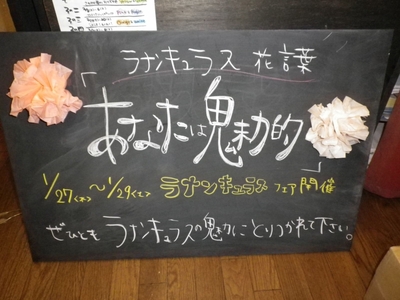 ラナンキュラス 花言葉
「あなたは魅力的」
1/27(木)〜1/29(土) ラナンキュラス フェア 開催
ぜひともラナンキュラスの魅力にとりつかれて下さい。